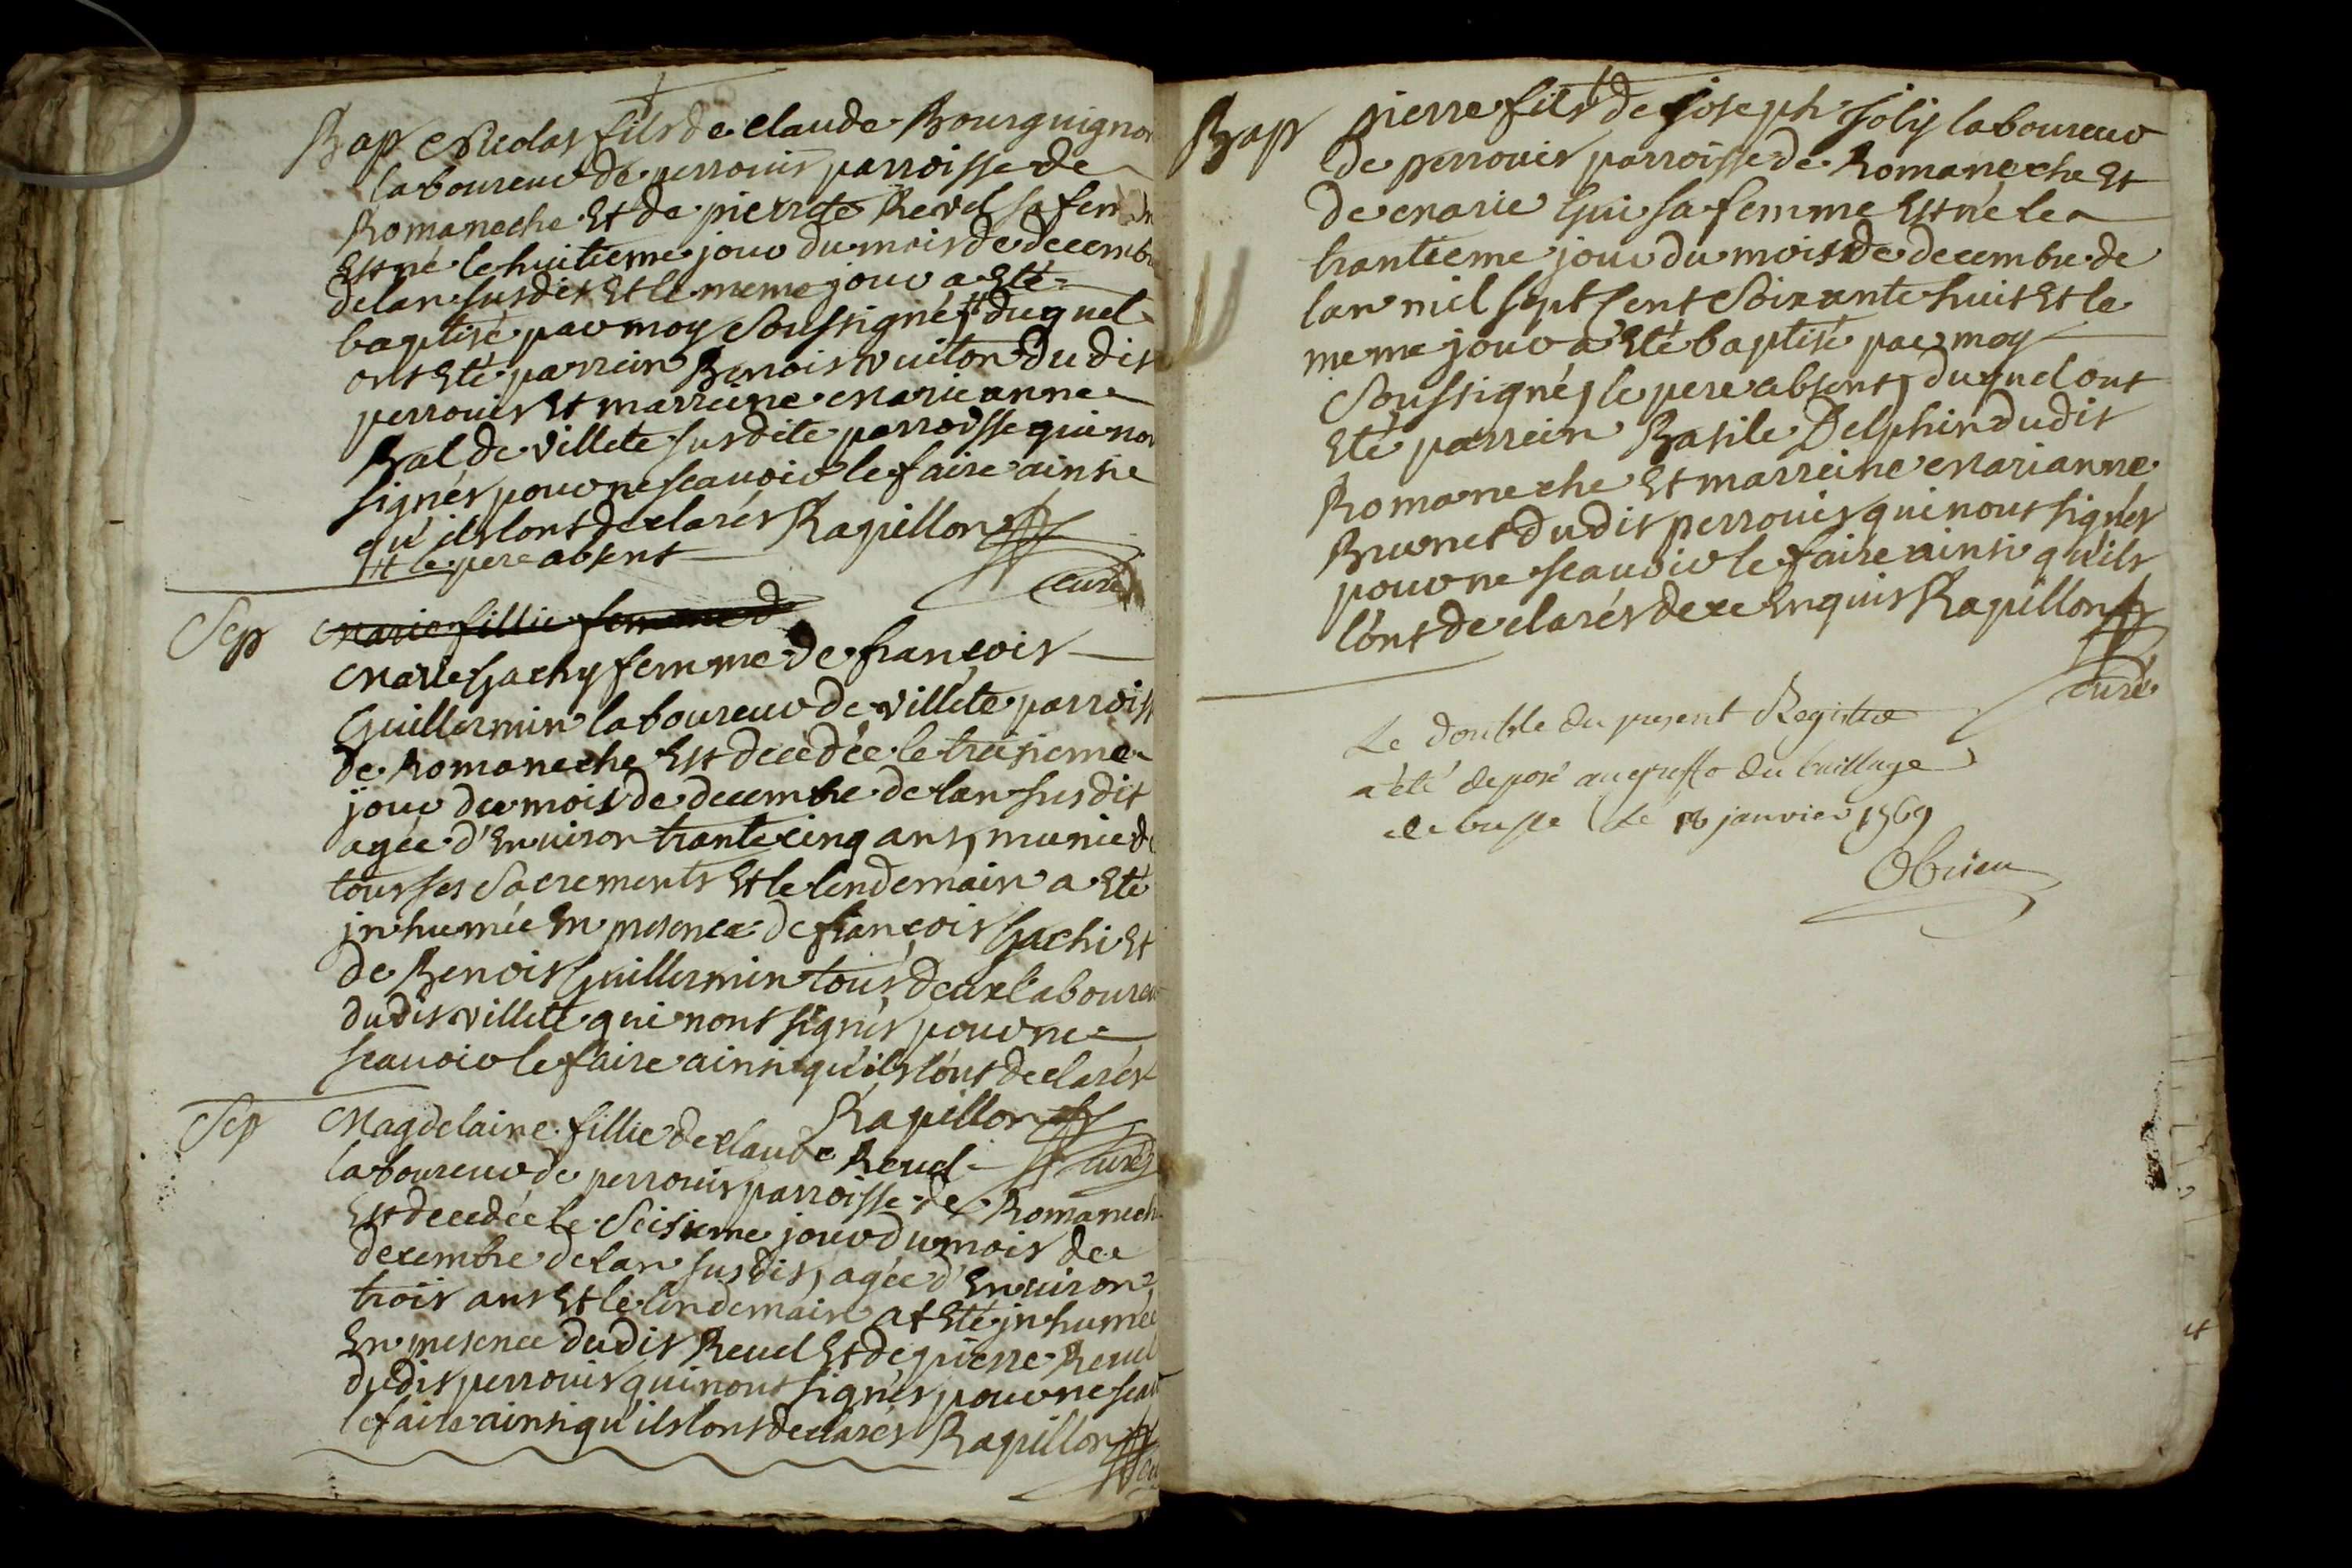 Bap Nicolas fils de claude Bourguignon
laboureur de perrouis parroisse de
Romaneche Et de pierrete Revel sa femme
Est né le huitieme jour du mois de decembre
de lan susdit Et le meme jour a Eté
baptisé par moy Soussigné # duquel
ont Eté parrein Benoit vuiton dudit
perrouis Et marreine marie anne
Bal de villete susdite parroisse qui nont
signés pour ne scauoir le faire ainsi
qu'ils lont declarés Rapillon
# le pere absent
curé
Sep marie fillie femme d
marie Gachy femme de françois
Guillermin laboureur de villete parroisse
de Romaneche Est decedée le treisieme
jour du mois de decembre de lan susdit
agée d'Enuiron trante cinq ans, munie de
tous ses Sacrements Et le lendemain a Eté
jnhumée En presence de françois Gachi Et
de Benoit Guillermin tous deux laboureur
dudit villete qui nont signés pour ne
scauoir le faire ainsi qu'ils l'ont declarés
Rapillon
curé
Sep Magdelaine fillie de claude Reuel
laboureur de perrouis parroisse de Romanech
Est decedée le Seisieme jour du mois de
decembre de lan susdit, agée d'Enuiron
trois ans Et le lendemain at Eté jnhumée
En presence dudit Reuel Et de pierre Reuel
dudit perrouis qui nont signés pour ne scau
le faire ainsi qu'ils lont declarés Rapillon
Bap pierre fils de Joseph Joly laboureur
de perrouis parroisse de Romaneche Et
de marie Gui sa femme Est né le
trantieme jour du mois de decembre de
lan mil sept Cent Soixante huit Et le
meme jour a Eté baptisé par moy
Soussigné, le pere absent, duquel ont
Eté parrein Basile Delphin dudit
Romaneche Et marreine marianne
Brunet dudit perrouis qui nont signés
pour ne scauoir le faire ainsi qu'ils
l'ont declarés de ce Enquis Rapillon
curé
Le double du present Registre
a été deposé au greffe du bailliage
de bresse Le 18 janvier 1769
Obrien